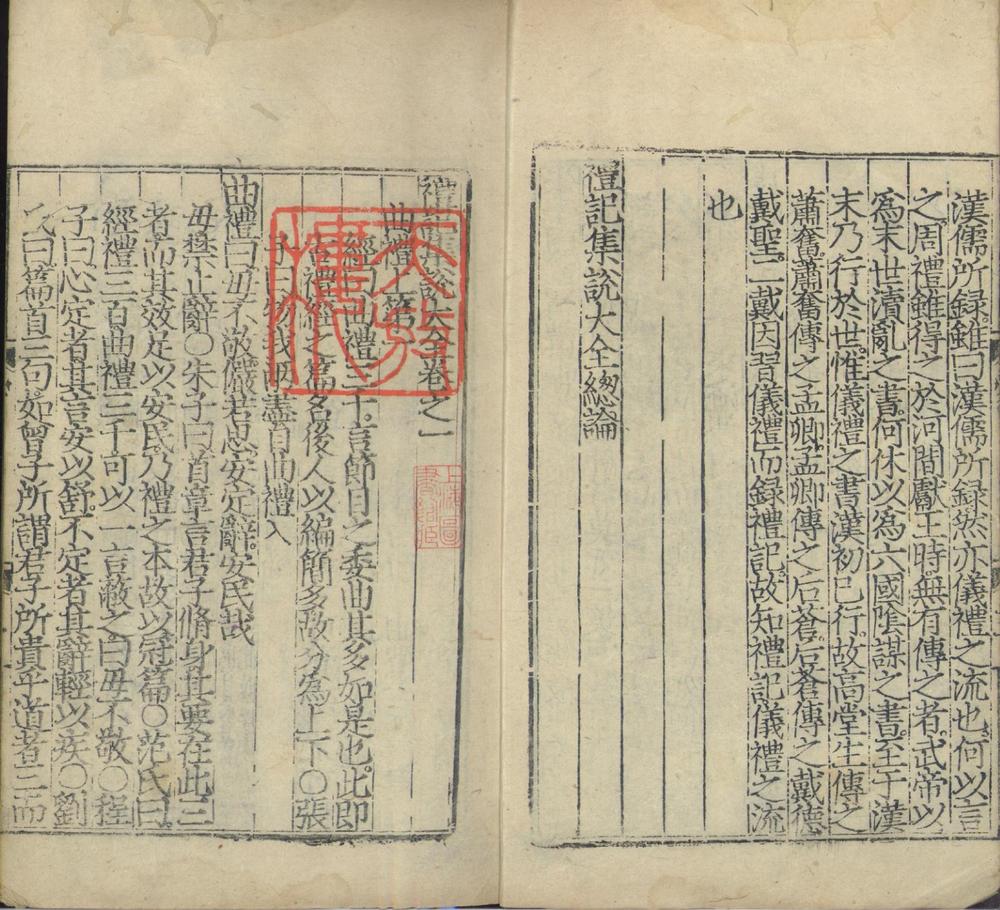 漢儒所録雖曰漢儒所録然亦儀禮之流也何以言
之周禮雖得之於河間獻王時無有傳之者武帝以
為末世瀆亂之書何休以為六國隂謀之書至于漢
末乃行於世惟儀禮之書漢初已行故高堂生傳之
蕭奮蕭奮傳之孟卿孟卿傳之后蒼后蒼傳之戴德
戴聖二戴因習儀禮而録禮記故知禮記儀禮之流
也
禮記集說大全緫論
禮記集說大全卷之一
曲禮上第一
經曰曲禮三千言節目之委曲其多如是也此即
古禮經之篇名後人以編簡多故分為上下○張
子曰物我兩盡自曲禮入
曲禮曰毋不敬儼若思安定辭安民哉
毋禁止辭○朱子曰首章言君子脩身其要在此三
者而其效足以安民乃禮之本故以冠篇○范氏曰
經禮三百曲禮三千可以一言蔽之曰毋不敬○程
子曰心定者其言安以舒不定者其辭輕以疾○劉
氏曰篇首三句如曾子所謂君子所貴乎道者三而
上海圖
書館臧